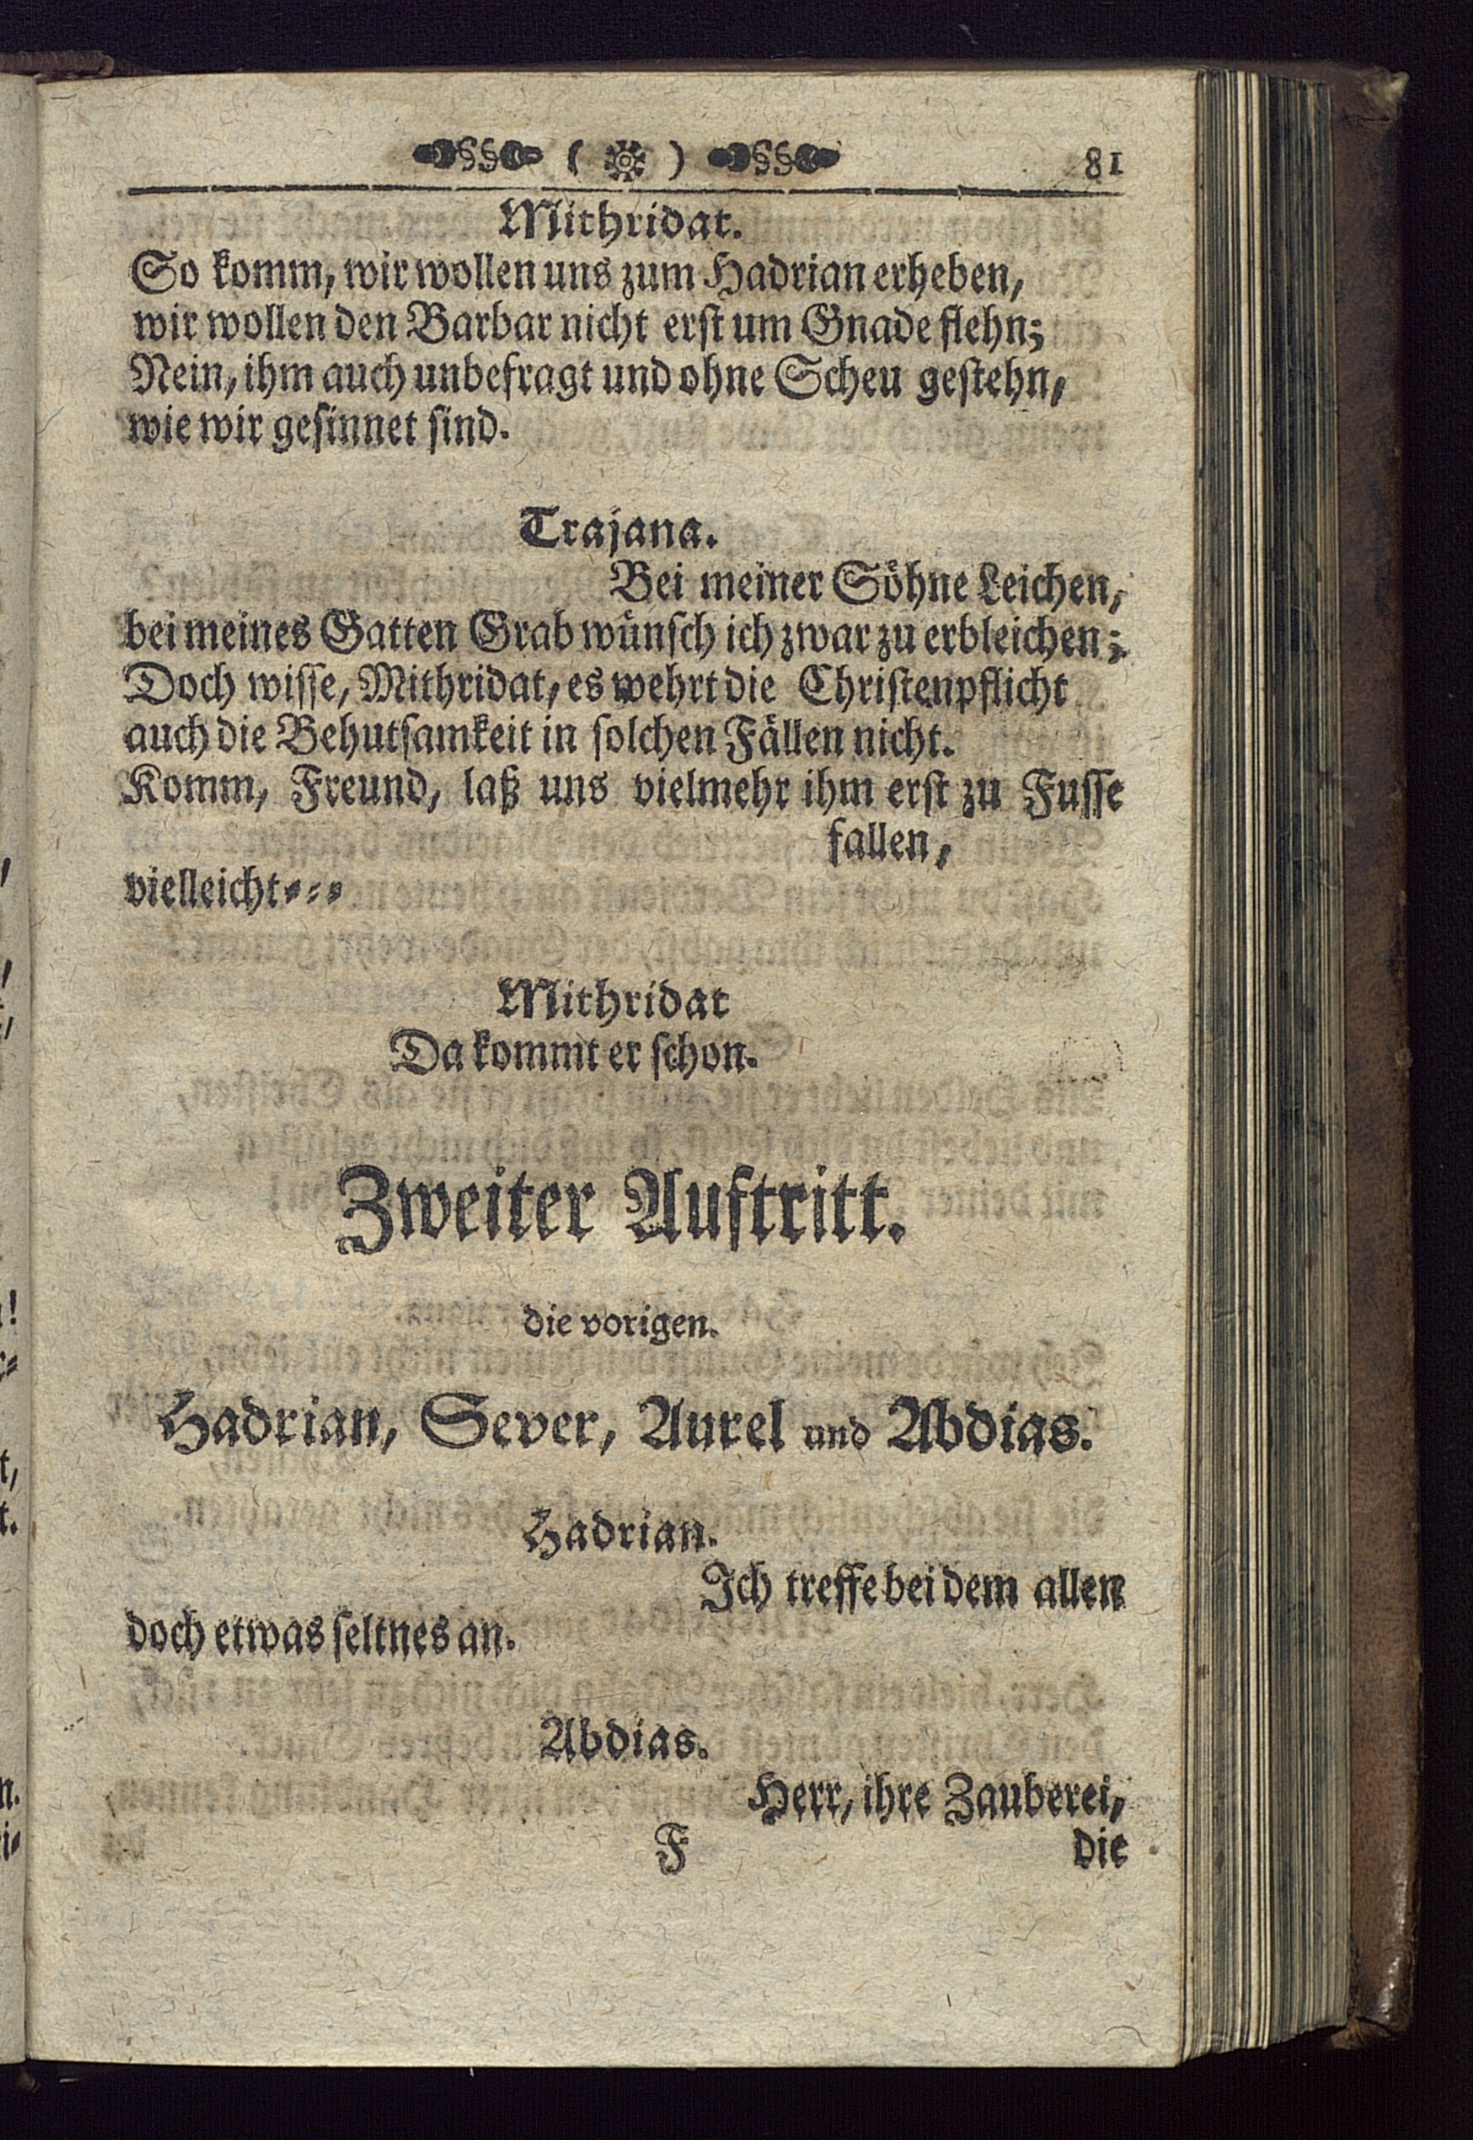 ( ) 81
Mithridat.
So komm, wir wollen uns zum Hadrian erheben,
wir wollen den Barbar nicht erst um Gnade flehn;
Nein, ihm auch unbefragt und ohne Scheu gestehn,
wie wir gesinnet sind.
Trajana.
Bei meiner Söhne Leichen,
bei meines Gatten Grab wünsch ich zwar zu erbleichen;
Doch wisse, Mithridat, es wehrt die Christenpflicht
auch die Behutsamkeit in solchen Fällen nicht.
Komm, Freund, laß uns vielmehr ihm erst zu Fusse
fallen,
vielleicht⸗⸗⸗
Mithridat
Da kommt er schon.
Zweiter Auftritt.
die vorigen.
Hadrian, Sever, Aurel und Abdias.
Hadrian.
Ich treffe bei dem allen
doch etwas seltnes an.
Abdias.
Herr, ihre Zauberei,
F die